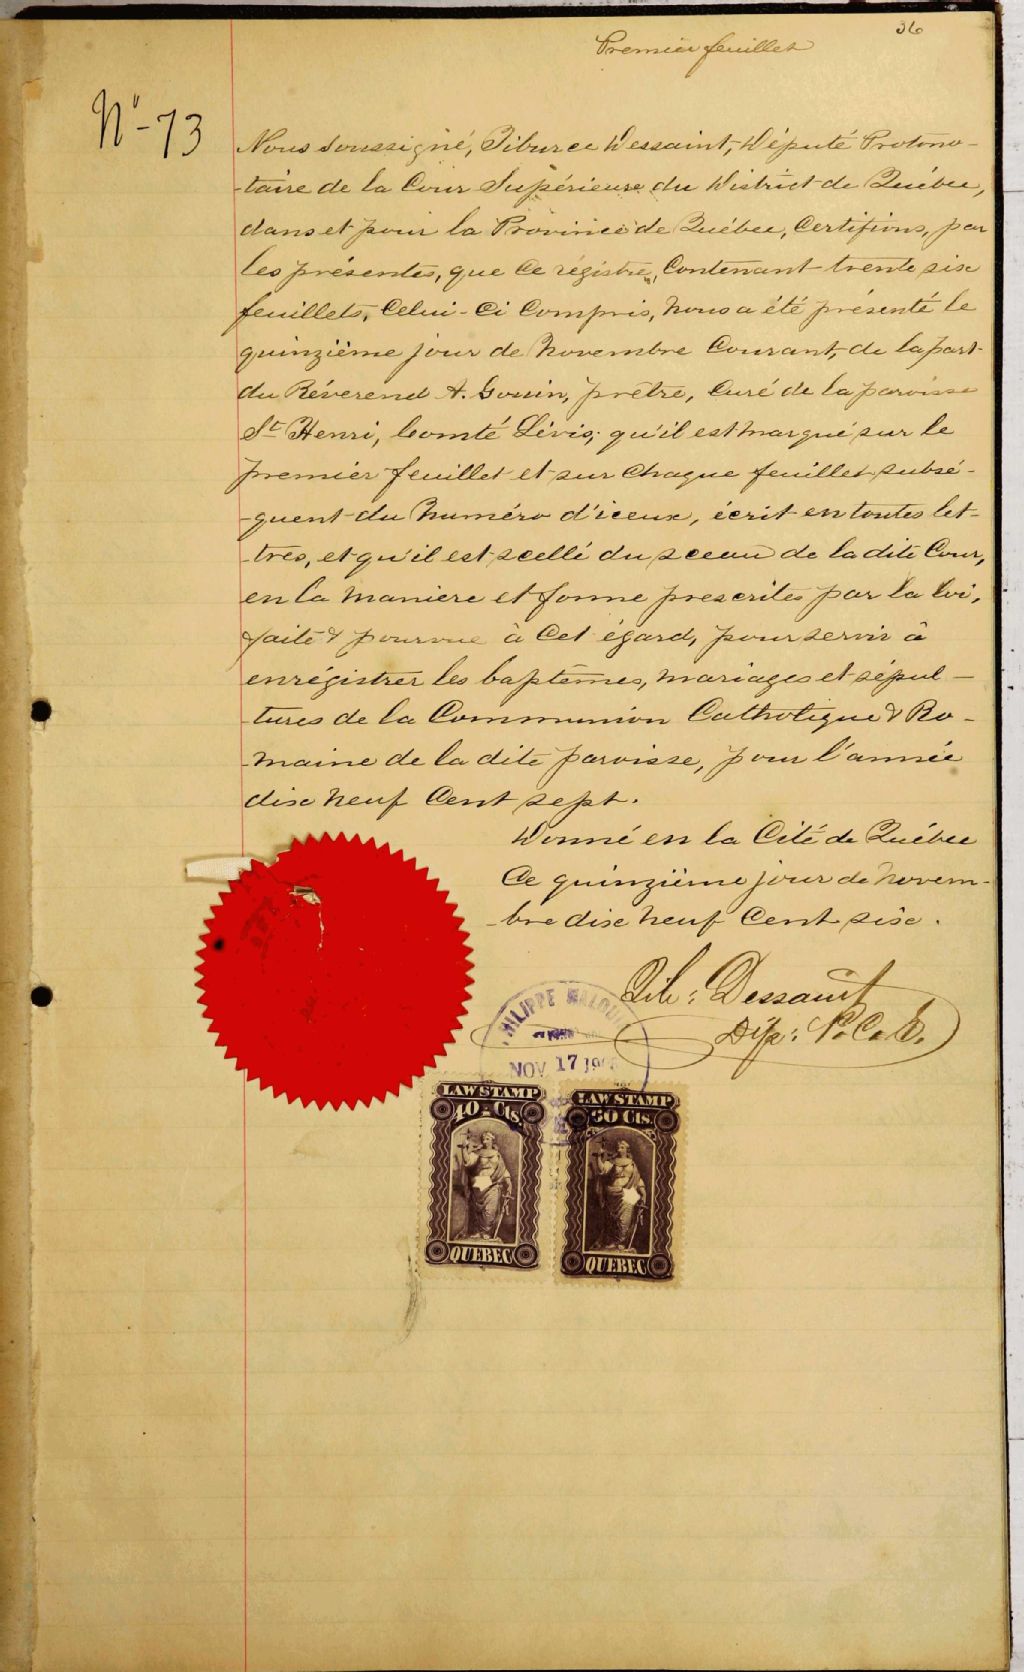 36
Premier feuillet
N° - 73
Nous soussigné, Tiburce Dessaint, Député Protono-
-taire de la Cour Supérieure du District de Québec,
dans et pour la Province de Québec, Certifions, par
les présentes, que ce régistre, contenant trente six
feuillets, celui-ci compris, nous a été présenté le
quinzième jour de novembre courant, de la part
du Révérend A. Gouin, prêtre, curé de la paroisse
St Henri, Comté Lévis; qu'il est marqué sur le
premier feuillet et sur chaque feuillet subsé-
-quent du numéro d'iceux, écrit en toutes let-
-tres, et qu'il est scellé du sceau de la dite Cour,
en la manière et forme prescrites par la loi,
faite & pourvue à cet égard, pour servir à
enrégistrer les baptêmes, mariages et sépul-
-tures de la Communion Catholique & Ro-
-maine de la dite paroisse, pour l'année
dix neuf cent sept.
Donné en la Cité de Québec
ce quinzième jour de novem-
-bre dix neuf cent six.
Tib: Dessaint
Dép: P.C.S.
PHILIPPE MALOUI
NOV 17 19
LAW STAMP
40 Cts.
QUEBEC
LAW STAMP
30 Cts.
QUEBEC